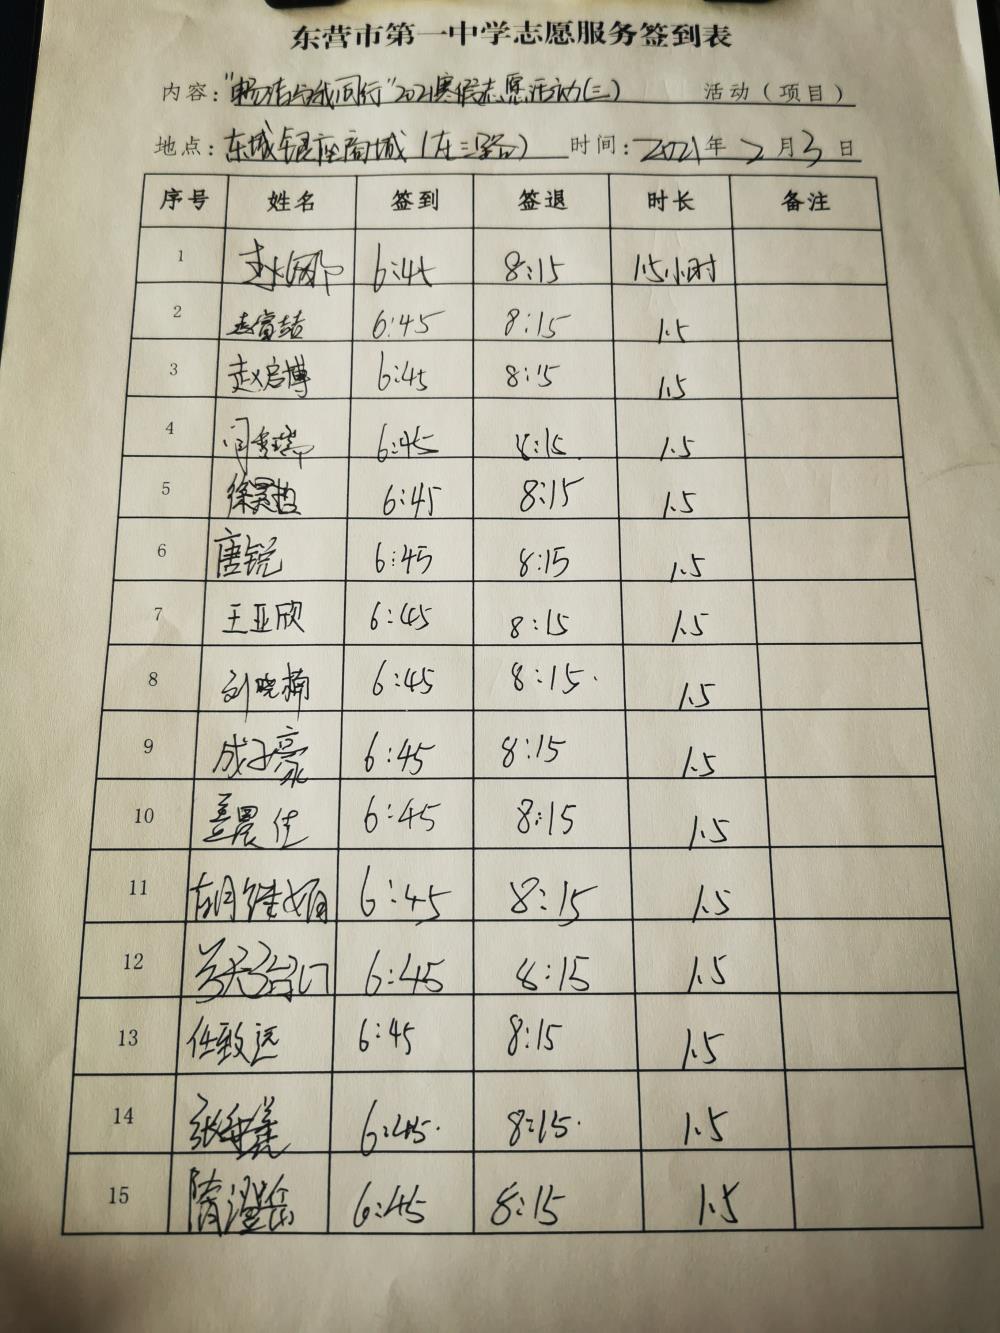 东营市第一中学志愿服务签到表
内容:"畅洁与我同行"2021寒假志愿活动(三) 活动(项目)
地点:东城银座商城(东三路) 时间:2021年2月3日
序号 姓名 签到 签退 时长 备注
1 6:45 8:15 1.5小时
2 6:45 8:15 1.5
3 赵启博 6:45 8:15 1.5
4 6:45 8:15 1.5
5 徐昊哲 6:45 8:15 1.5
6 唐锐 6:45 8:15 1.5
7 王亚欣 6:45 8:15 1.5
8 刘晓楠 6:45 8:15 1.5
9 成子豪 6:45 8:15 1.5
10 6:45 8:15 1.5
11 胡继娟 6:45 8:15 1.5
12 6:45 8:15 1.5
13 任致远 6:45 8:15 1.5
14 6:45 8:15 1.5
15 6:45 8:15 1.5